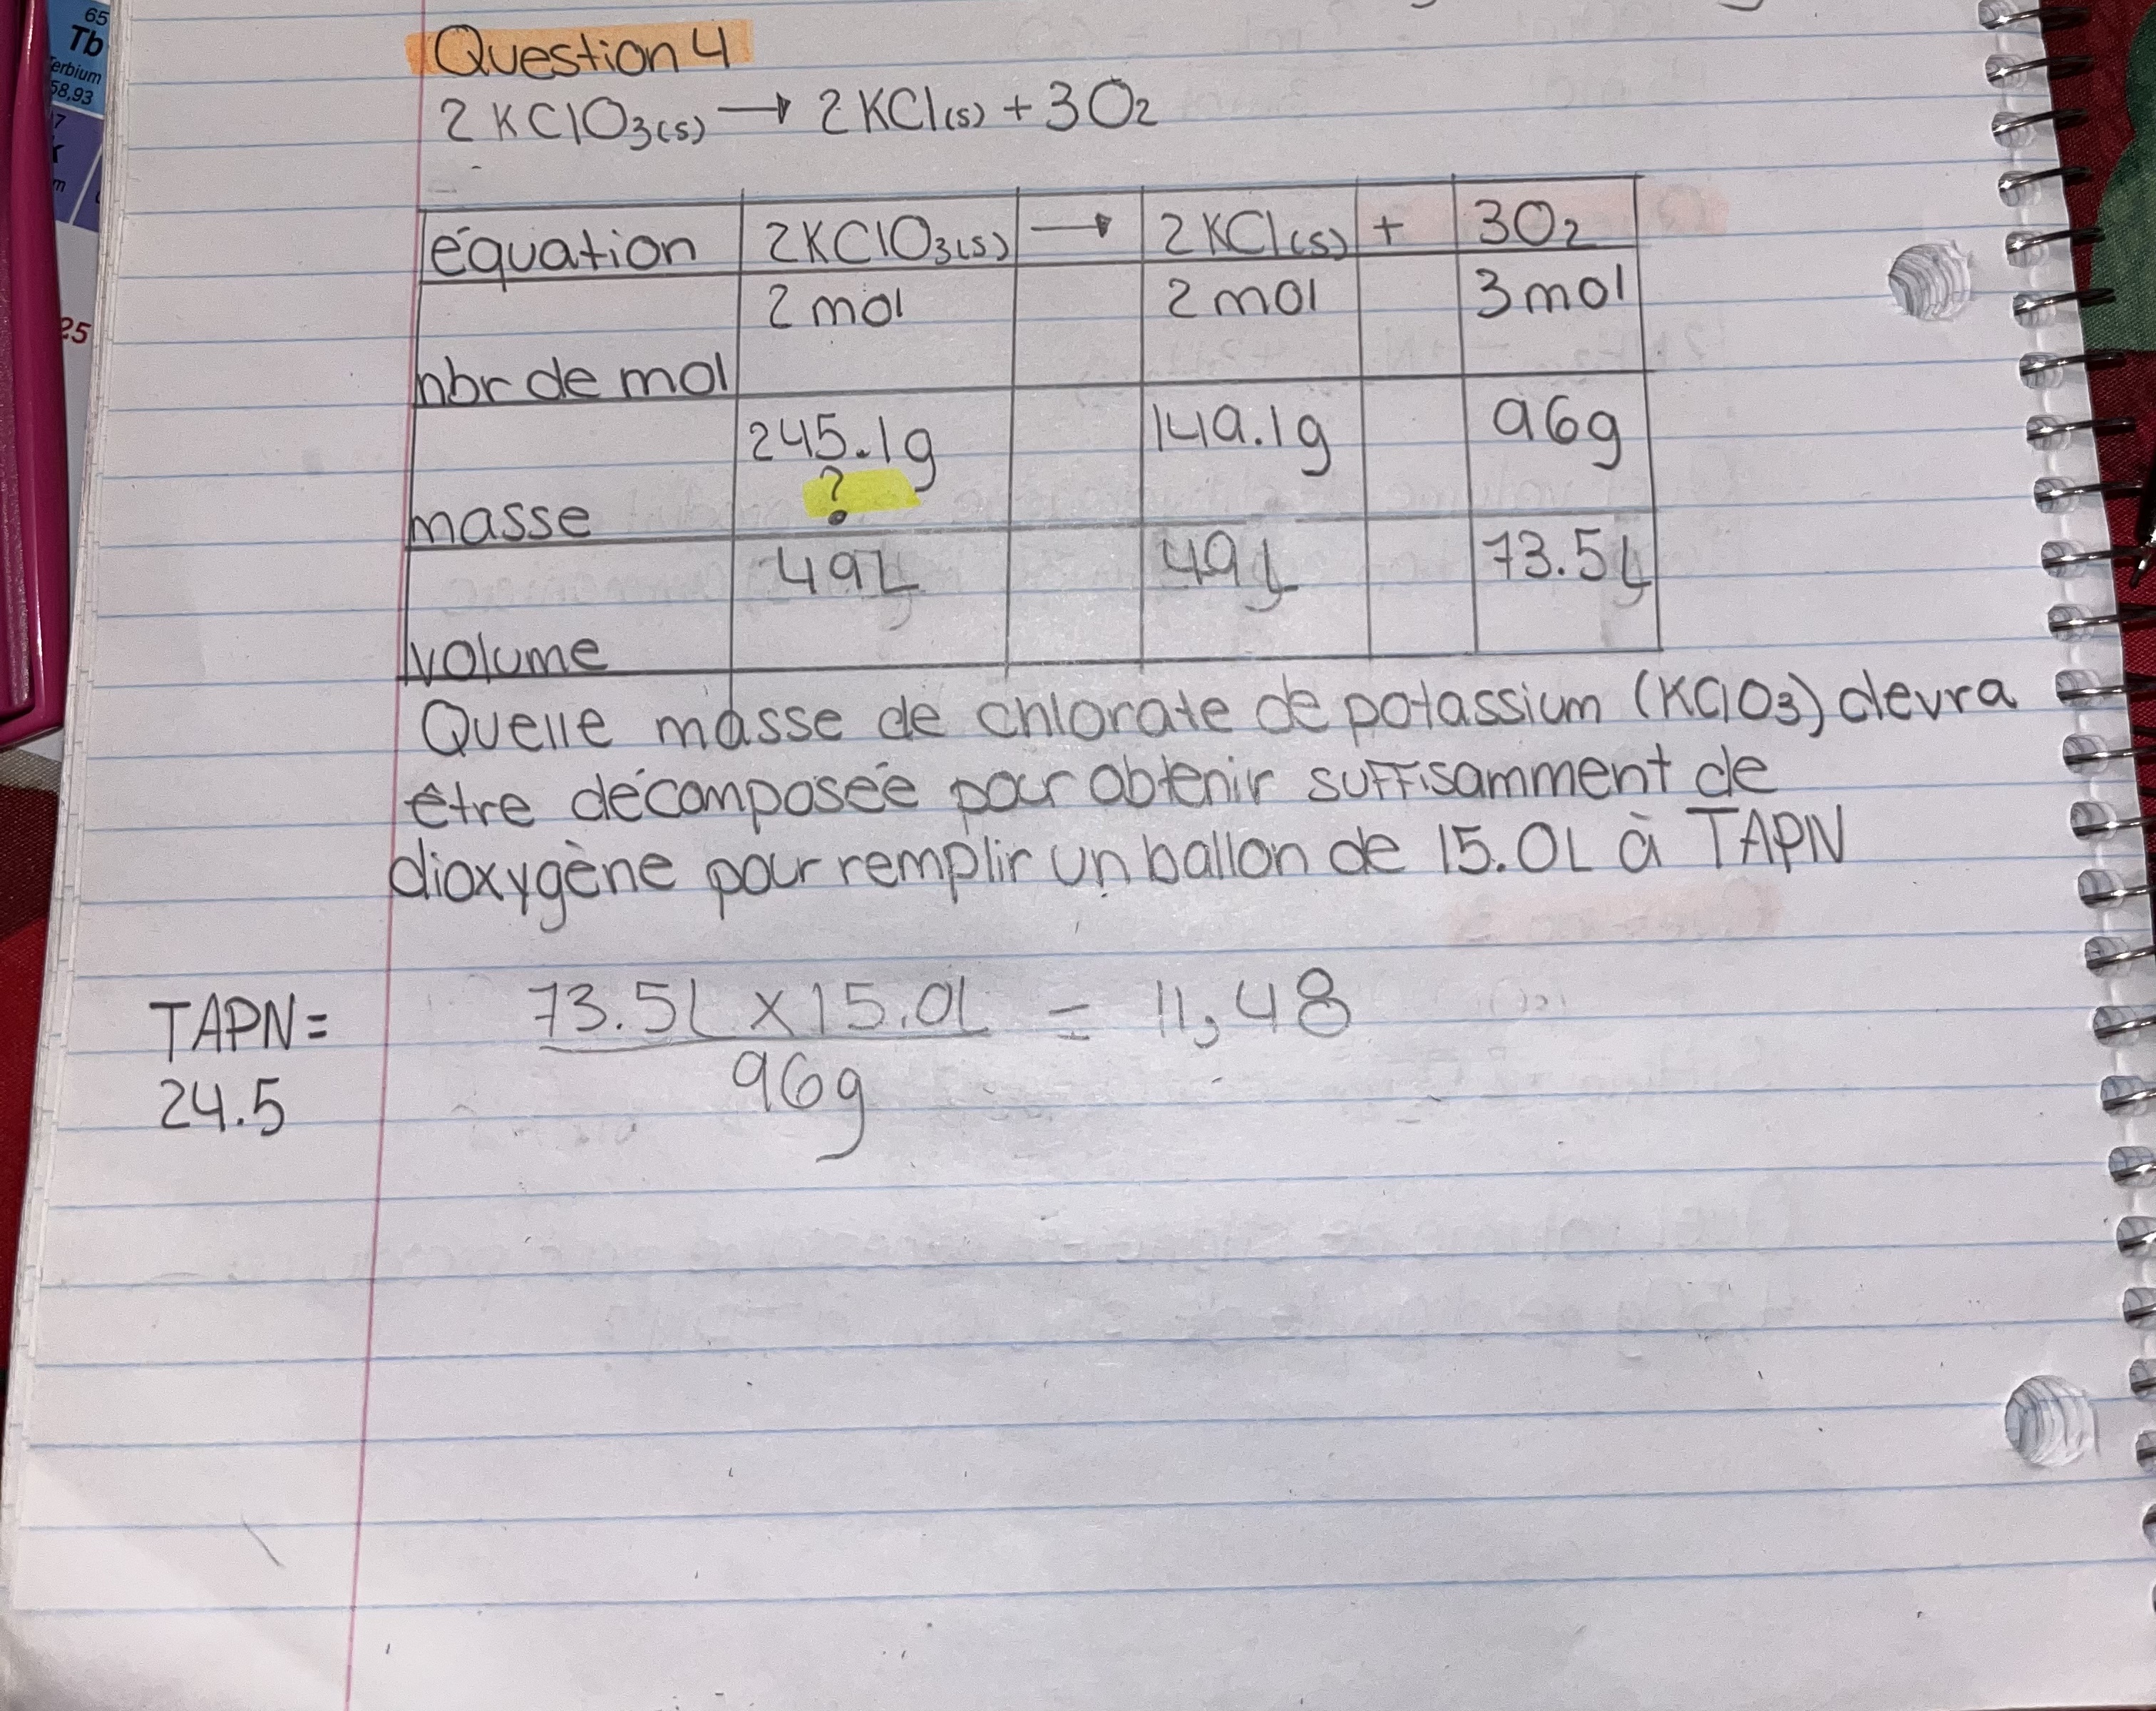 65
Tb
erbium
58,93
25
Question 4
2KClO3(s) → 2KCl(s) + 3O2
équation 2KClO3(s) → 2KCl(s) + 3O2
nbr de mol 2 mol 2 mol 3 mol
masse 245.1g ? 149.1g 96g
volume 49L 49L 73.5L
Quelle masse de chlorate de potassium (KClO3) devra
être décomposée pour obtenir suffisamment de
dioxygène pour remplir un ballon de 15.0L à TAPN
TAPN=
24.5
73.5L x 15.0L = 11,48
96g